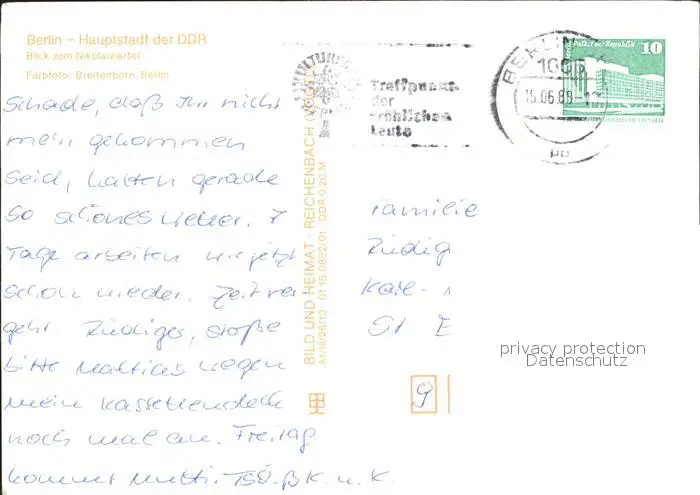 Berlin – Hauptstadt der DDR
Blick zum Nikolaiviertel
Farbfoto: Breitenborn, Berlin
Schade, daß Ihr nicht
mehr gekommen
seid, hatten gerade
so schönes Wetter. 7
Tage arbeiten wir jetzt
schon wieder. Zeit ver
geht. Rüdiger, stoße
bitte Mattias wegen
mein Kassettendeck
noch mal an. Freitag
kommt Mutti. Tsö. B. K. u. K.
BILD UND HEIMAT · REICHENBACH (VOGTL
A1/III/26/13 01 15 0862/01 DDR 0,20 M
KULTURPARK
Treffpunkt
der
fröhlichen
Leute
BERLIN
1085
15.06.88
Berlin, Palast der Republik 10
Familie
Rüdig
Karl-
9
privacy protection
Datenschutz